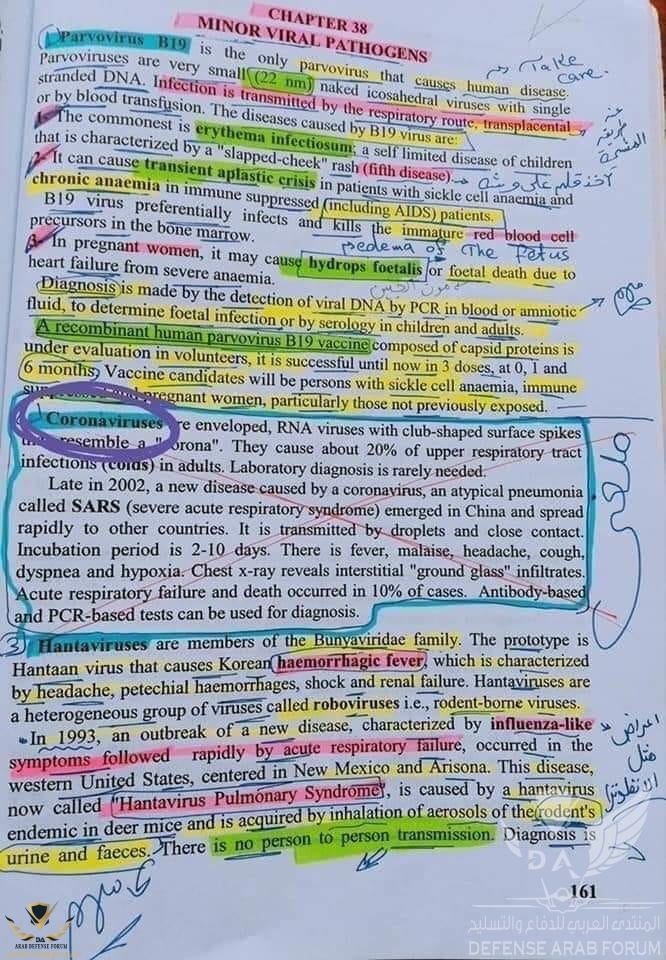 CHAPTER 38
MINOR VIRAL PATHOGENS
Parvovirus B19 is the only parvovirus that causes human disease.
Take
care.
Parvoviruses are very small (22 nm) naked icosahedral viruses with single
stranded DNA. Infection is transmitted by the respiratory route, transplacental
or by blood transfusion. The diseases caused by B19 virus are:
1. The commonest is erythema infectiosum; a self limited disease of children
that is characterized by a "slapped-cheek" rash (fifth disease).
2. It can cause transient aplastic crisis in patients with sickle cell anaemia and
chronic anaemia in immune suppressed (including AIDS) patients.
B19 virus preferentially infects and kills the immature red blood cell
precursors in the bone marrow.
oedema of The fetus
3. In pregnant women, it may cause hydrops foetalis or foetal death due to
heart failure from severe anaemia.
Diagnosis is made by the detection of viral DNA by PCR in blood or amniotic
fluid, to determine foetal infection or by serology in children and adults.
A recombinant human parvovirus B19 vaccine composed of capsid proteins is
under evaluation in volunteers, it is successful until now in 3 doses, at 0, 1 and
6 months. Vaccine candidates will be persons with sickle cell anaemia, immune
pregnant women, particularly those not previously exposed.
Coronaviruses are enveloped, RNA viruses with club-shaped surface spikes
resemble a "corona". They cause about 20% of upper respiratory tract
infections (colds) in adults. Laboratory diagnosis is rarely needed.
ملغى
Late in 2002, a new disease caused by a coronavirus, an atypical pneumonia
called SARS (severe acute respiratory syndrome) emerged in China and spread
rapidly to other countries. It is transmitted by droplets and close contact.
Incubation period is 2-10 days. There is fever, malaise, headache, cough,
dyspnea and hypoxia. Chest x-ray reveals interstitial "ground glass" infiltrates.
Acute respiratory failure and death occurred in 10% of cases. Antibody-based
and PCR-based tests can be used for diagnosis.
3) Hantaviruses are members of the Bunyaviridae family. The prototype is
Hantaan virus that causes Korean haemorrhagic fever, which is characterized
by headache, petechial haemorrhages, shock and renal failure. Hantaviruses are
a heterogeneous group of viruses called roboviruses i.e., rodent-borne viruses.
In 1993, an outbreak of a new disease, characterized by influenza-like
اعراض
مثل
الانفلونزا
symptoms followed rapidly by acute respiratory failure, occurred in the
western United States, centered in New Mexico and Arisona. This disease,
now called "Hantavirus Pulmonary Syndrome", is caused by a hantavirus
endemic in deer mice and is acquired by inhalation of aerosols of the rodent's
urine and faeces. There is no person to person transmission. Diagnosis is
161
DA
ARAB DEFENSE FORUM
DA
المنتدى العربي للدفاع والتسليح
DEFENSE ARAB FORUM